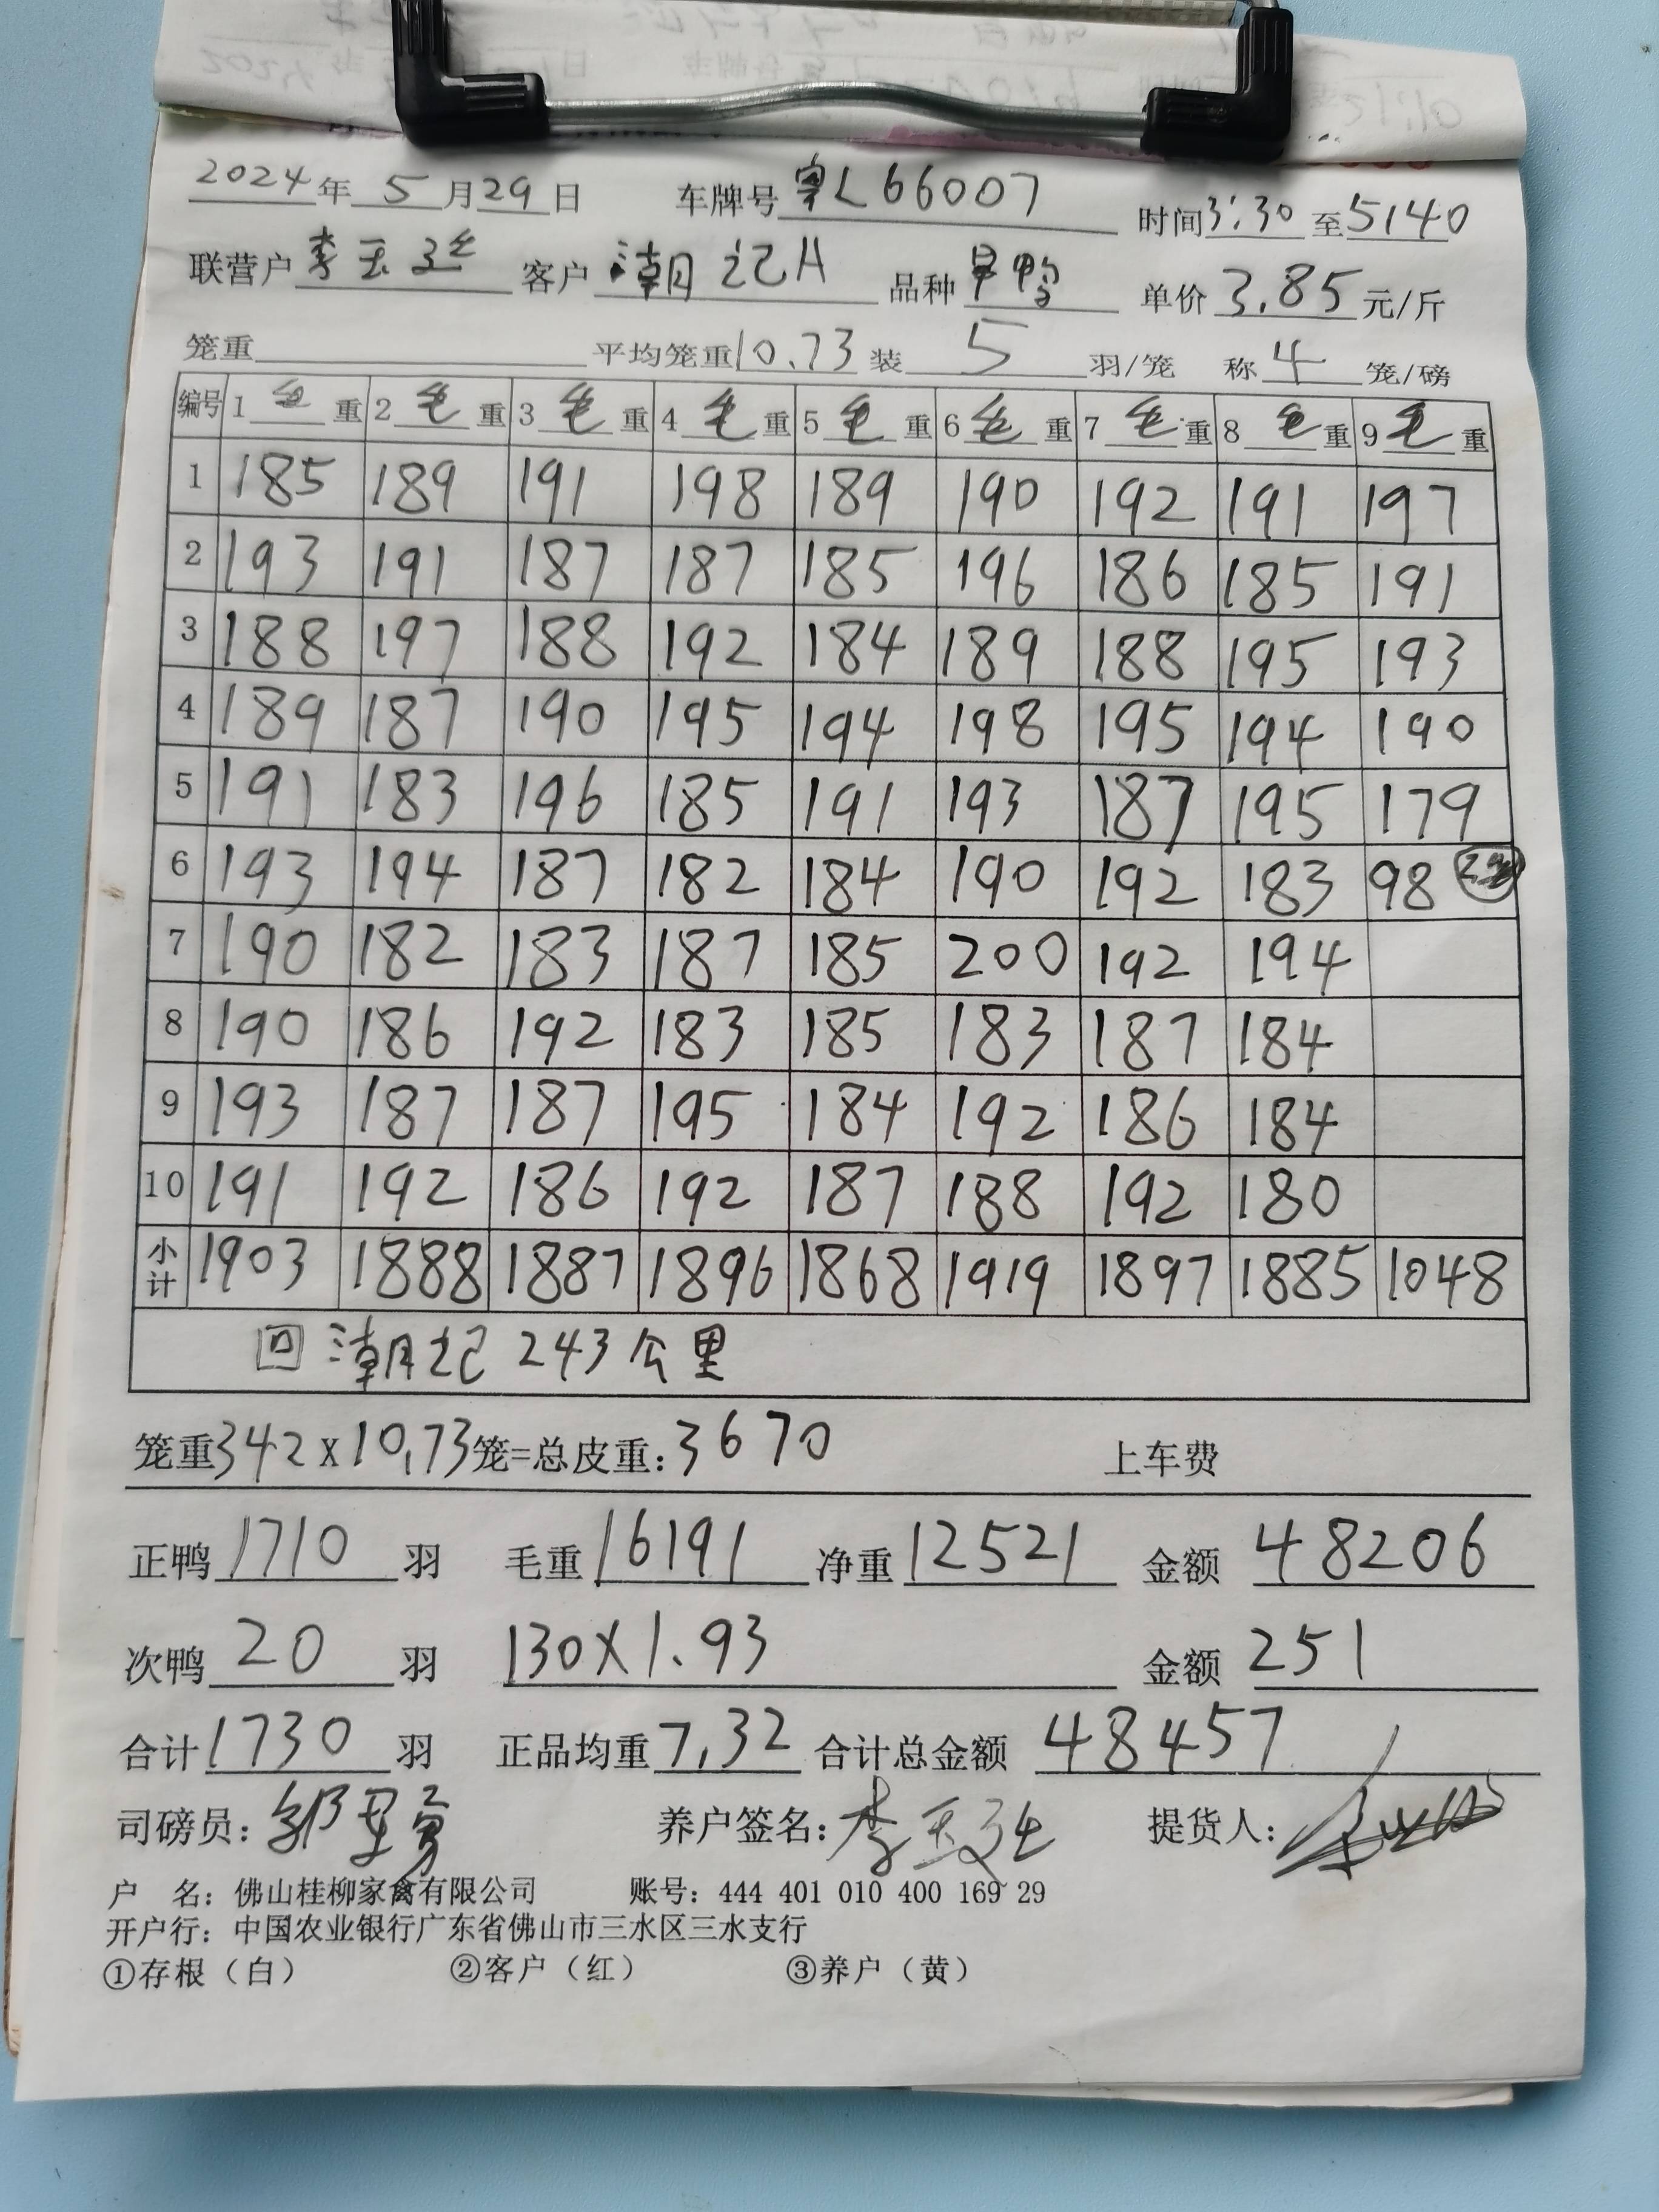 2024年 5 月 29 日 车牌号 粤L66007 时间 3:30 至 5:40
联营户 李玉 客户 潮记A 品种 旱鸭 单价 3.85 元/斤
笼重 平均笼重 10.73 装 5 羽/笼 称 4 笼/磅
编号 1 毛 重 2 毛 重 3 毛 重 4 毛 重 5 毛 重 6 毛 重 7 毛 重 8 毛 重 9 毛 重
1 185 189 191 198 189 190 192 191 197
2 193 191 187 187 185 196 186 185 191
3 188 197 188 192 184 189 188 195 193
4 189 187 190 195 194 198 195 194 190
5 191 183 196 185 191 193 187 195 179
6 193 194 187 182 184 190 192 183 98
7 190 182 183 187 185 200 192 194
8 190 186 192 183 185 183 187 184
9 193 187 187 195 184 192 186 184
10 191 192 186 192 187 188 192 180
小计 1903 1888 1887 1896 1868 1919 1897 1885 1048
回潮记 243公里
笼重 342 x 10.73 笼=总皮重: 3670 上车费
正鸭 1710 羽 毛重 16191 净重 12521 金额 48206
次鸭 20 羽 130X1.93 金额 251
合计 1730 羽 正品均重 7.32 合计总金额 48457
司磅员: 养户签名: 李玉 提货人:
户 名: 佛山桂柳家禽有限公司 账号: 444 401 010 400 169 29
开户行: 中国农业银行广东省佛山市三水区三水支行
①存根（白） ②客户（红） ③养户（黄）